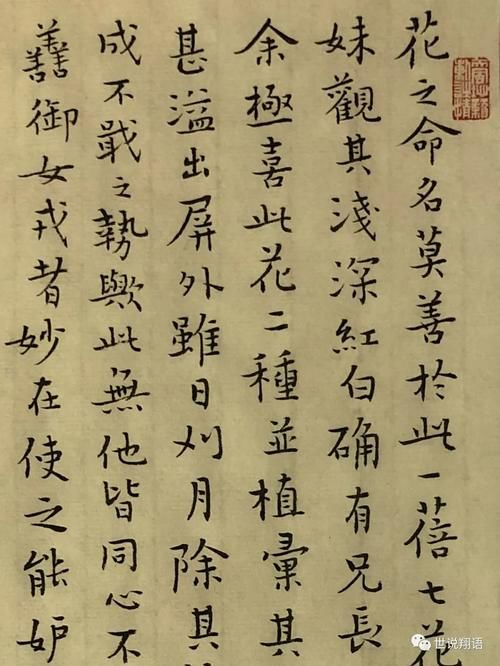 花之命名莫善於此一蓓七花
妹觀其淺深紅白确有兄長
余極喜此花二種並植彙其
甚溢出屏外雖日刈月除其
成不戢之勢歟此無他皆同心不
譱御女戎者妙在使之能妒
世说翔语